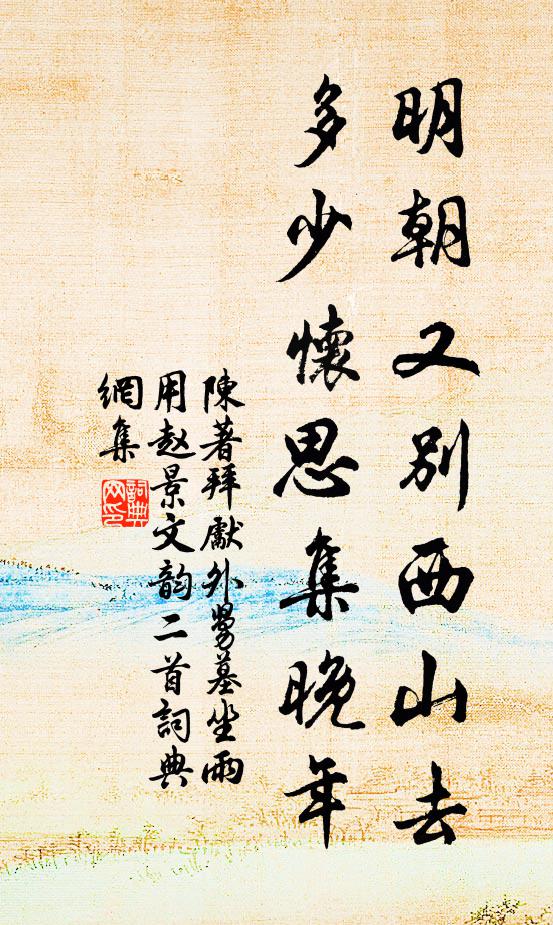 明朝又別西山去
多少懷思集晚年
陳著拜獻外舅墓坐雨
用赵景文韵二首詞典
網集
詞典
网印